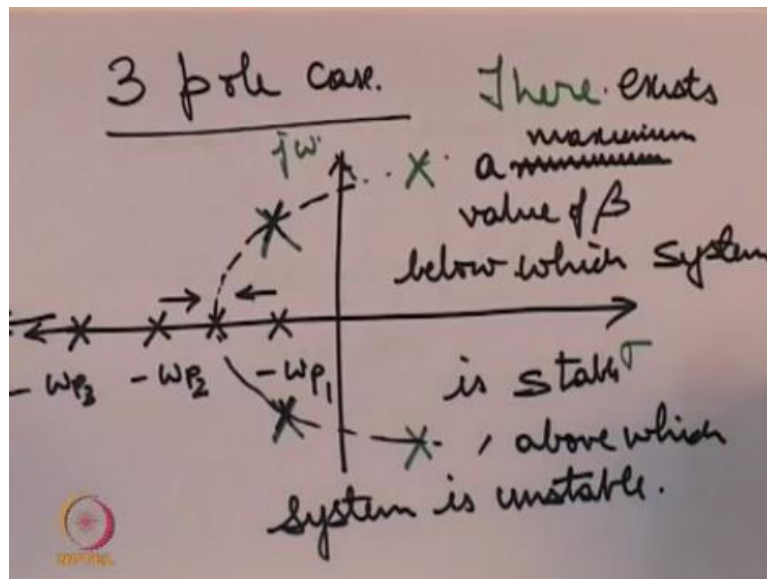 3 pole case.
There exists
a maximum
value of β
below which system
is stable
, above which
system is unstable.
jω
σ
- ωp3
- ωp2
- ωp1
NPTEL